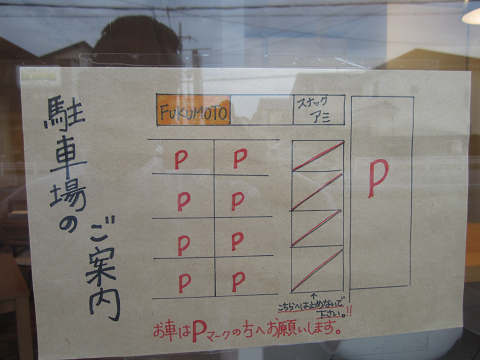 駐車場の
ご案内
FUKUMOTO
スナック
アミ
P P
P P
P P
P P
P
↑
こちらへは止めないで
下さい。!!
お車はPマークの方へお願いします。